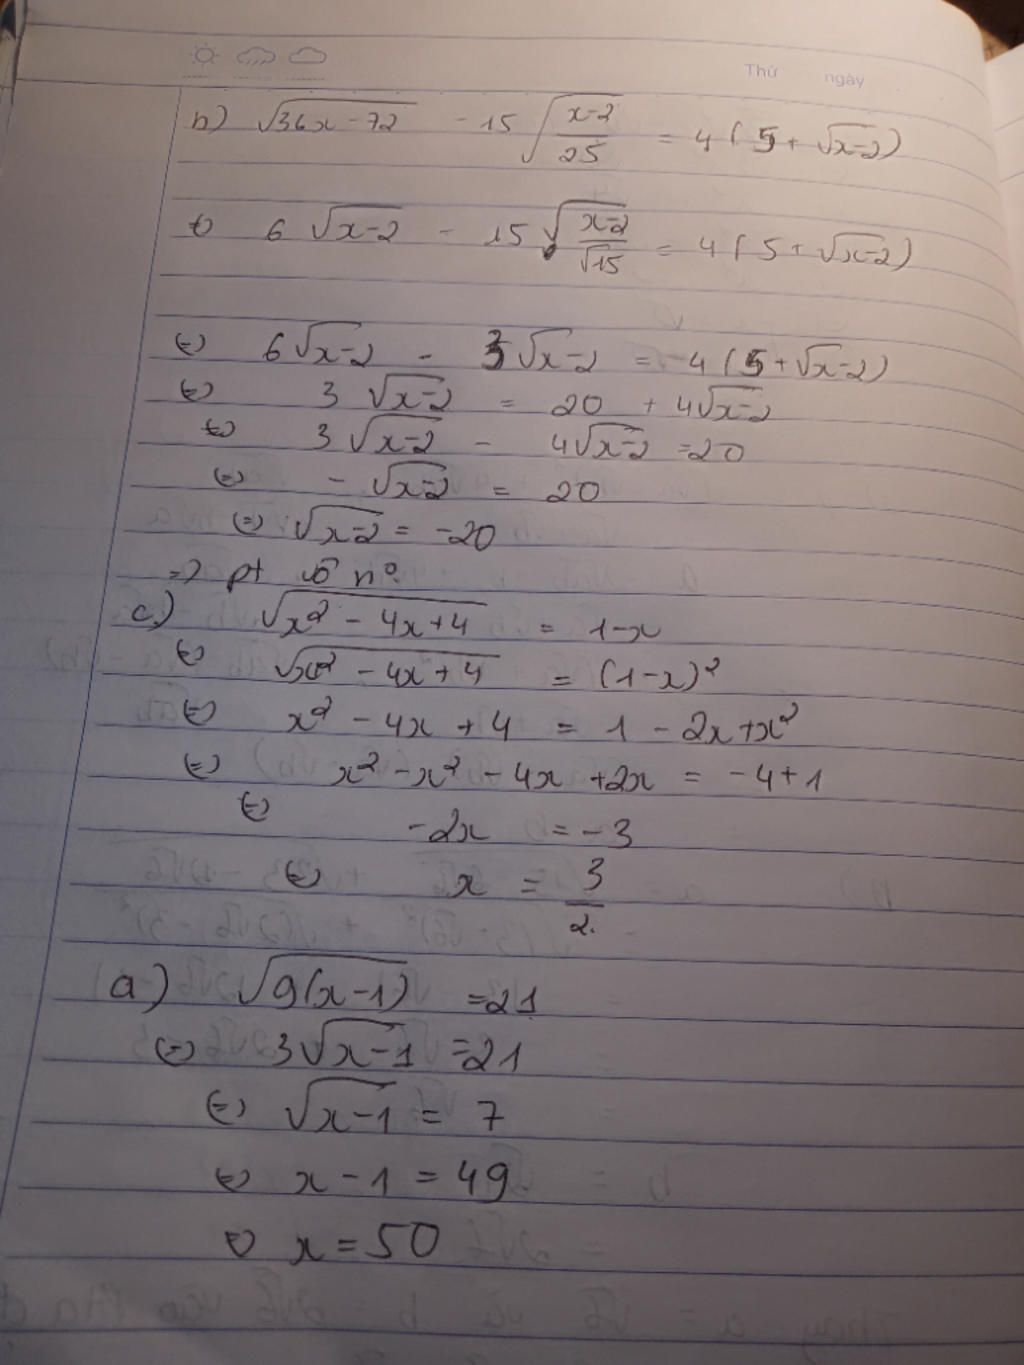 Thứ ngày
b) √(36x-72) - 15√((x-2)/25) = 4(5+√(x-2))
⇔ 6√(x-2) - 15√(x-2)/√15 = 4(5+√(x-2))
⇔ 6√(x-2) - 3√(x-2) = 4(5+√(x-2))
⇔ 3√(x-2) = 20 + 4√(x-2)
⇔ 3√(x-2) - 4√(x-2) = 20
⇔ -√(x-2) = 20
⇔ √(x-2) = -20
=> pt vô n°
c) √(x²-4x+4) = 1-x
⇔ √(x²-4x+4) = (1-x)²
⇔ x²-4x+4 = 1-2x+x²
⇔ x²-x²-4x+2x = -4+1
⇔ -2x = -3
⇔ x = 3/2
a) √(9(x-1)) = 21
⇔ 3√(x-1) = 21
⇔ √(x-1) = 7
⇔ x-1 = 49
⇔ x = 50